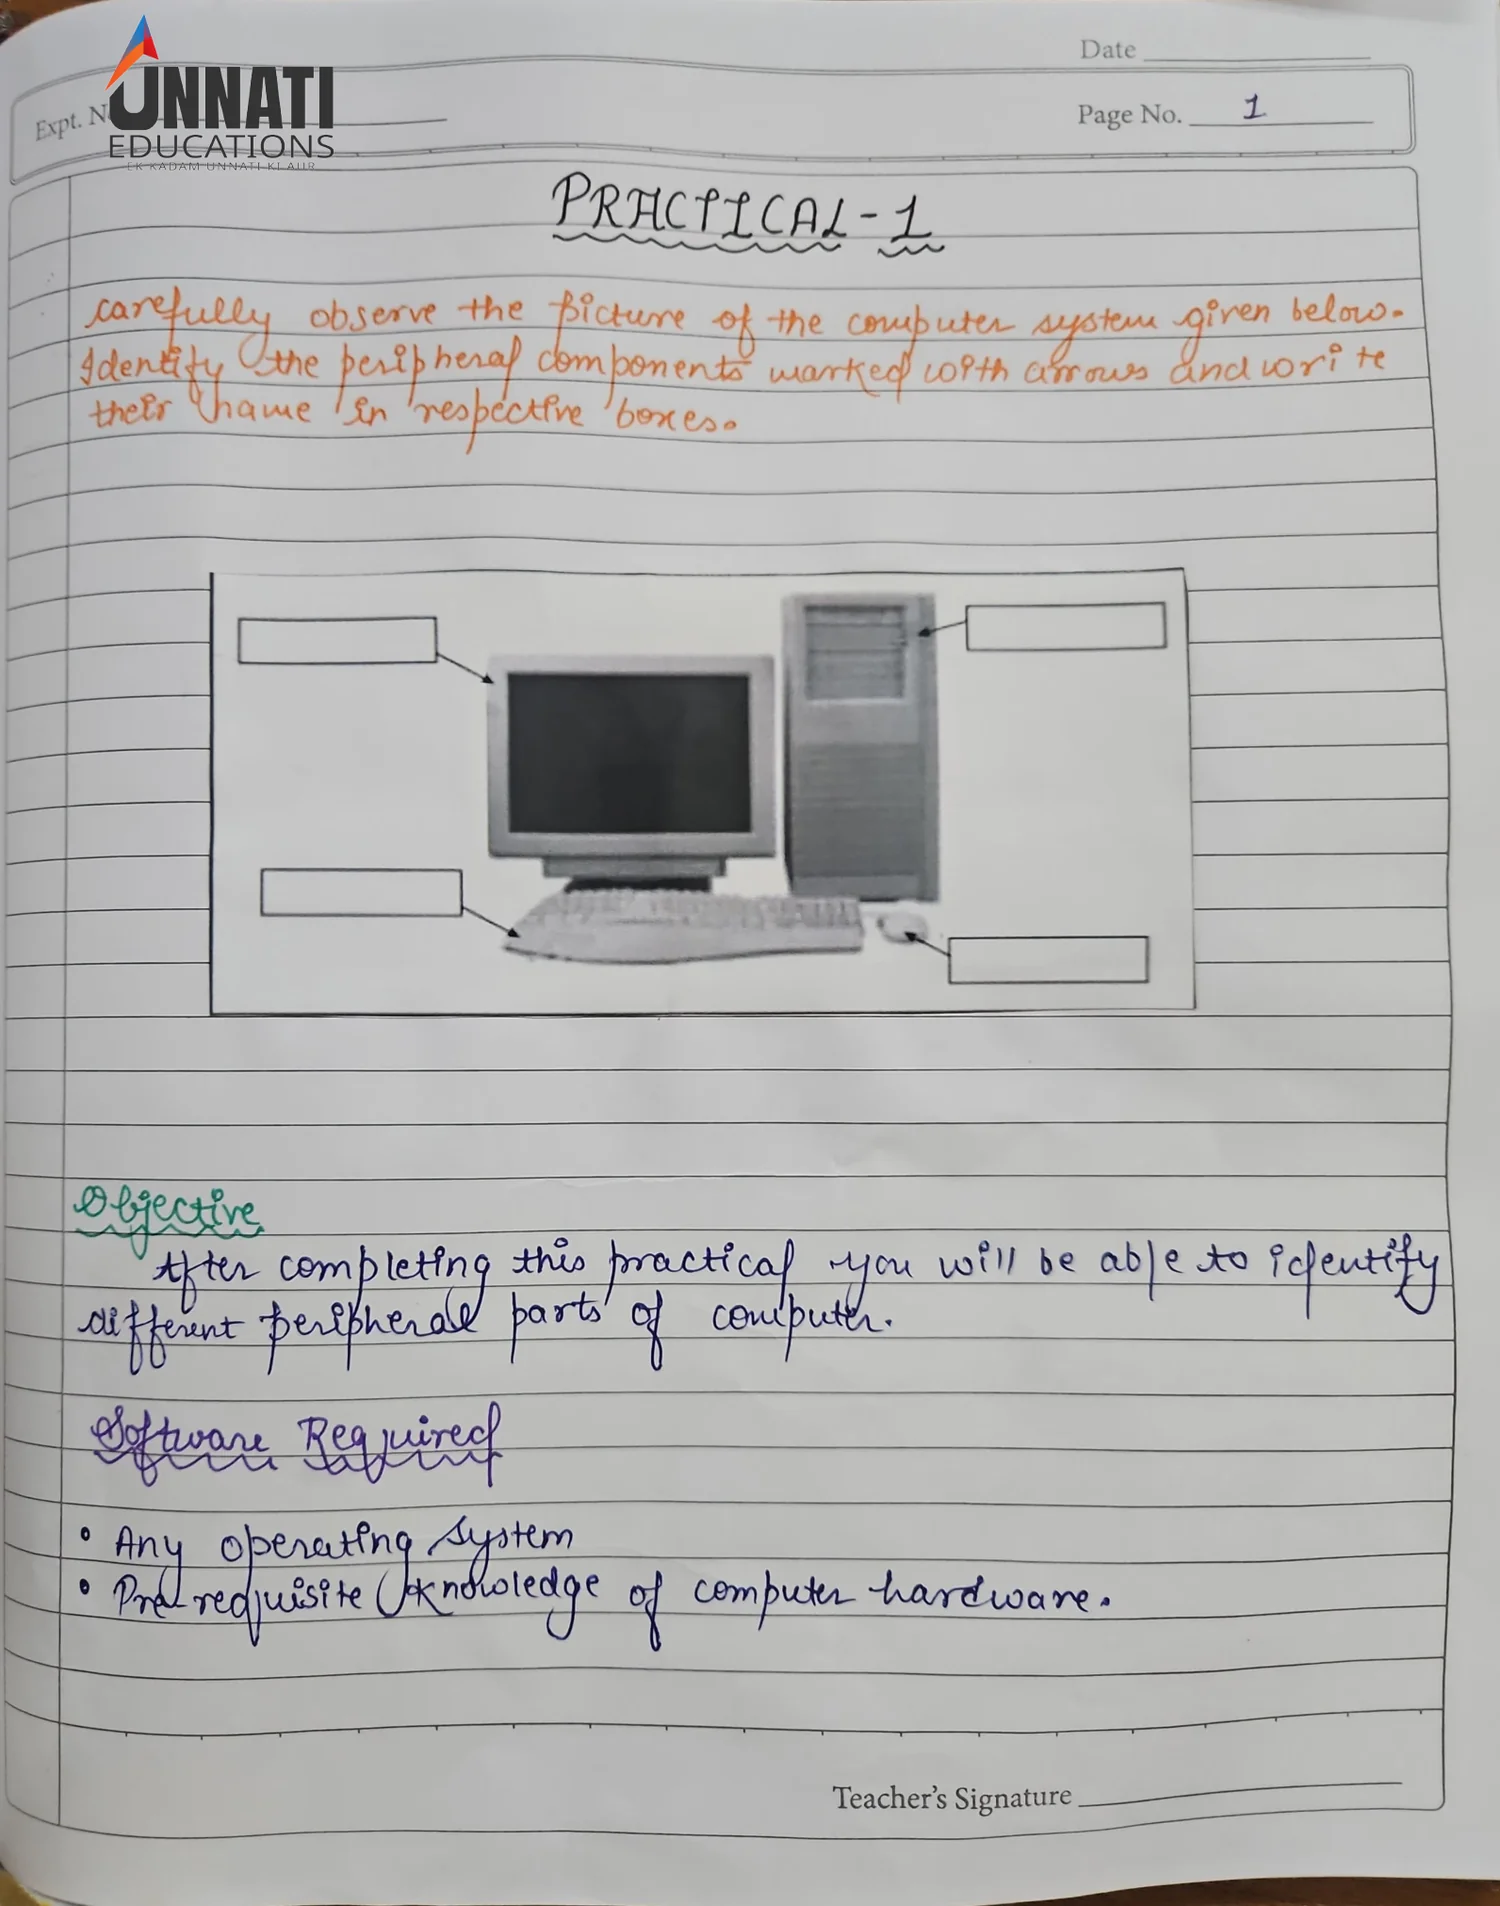 UNNATI
EDUCATIONS
EK KADAM UNNATI KI AUR
Date
Expt. N
Page No. 1
PRACTICAL-1
carefully observe the picture of the computer system given below.
Identify the peripheral components marked with arrows and write
their name in respective boxes.
Objective
After completing this practical you will be able to identify
different peripheral parts of computer.
Software Required
• Any operating system
• Pre-requisite knowledge of computer hardware.
Teacher's Signature